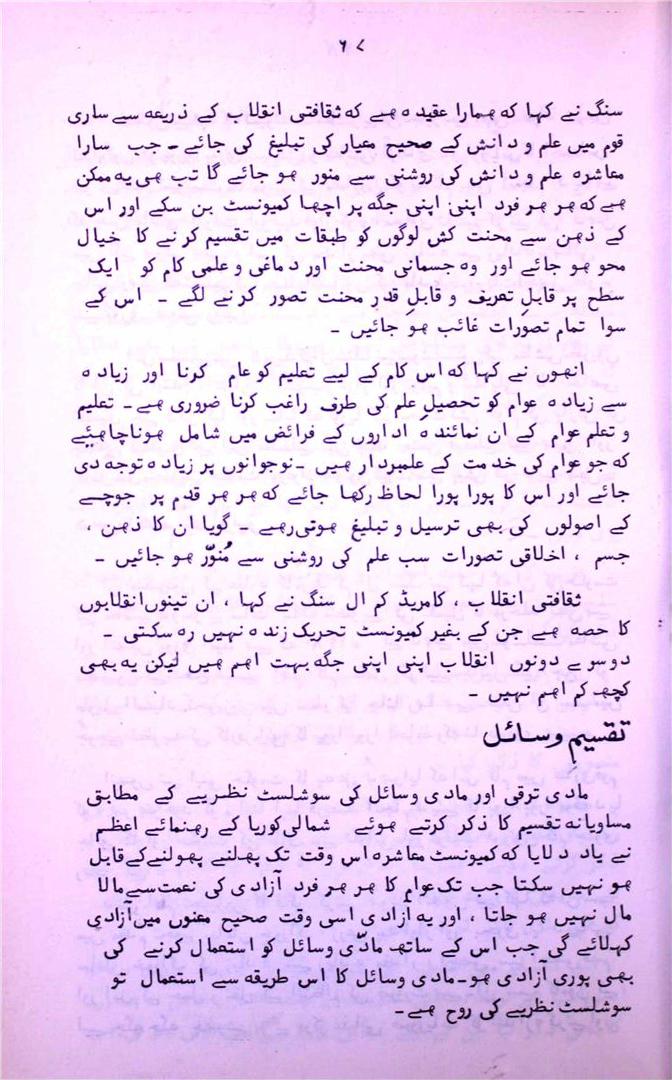 ۶۷
سنگ نے کہا کہ ہمارا عقیدہ ہے کہ ثقافتی انقلاب کے ذریعہ سے ساری
قوم میں علم و دانش کے صحیح معیار کی تبلیغ کی جائے ۔ جب سارا
معاشرہ علم و دانش کی روشنی سے منور ہو جائے گا تب ہی یہ ممکن
ہے کہ ہر ہر فرد اپنی اپنی جگہ پر اچھا کمیونسٹ بن سکے اور اس
کے ذہن سے محنت کش لوگوں کو طبقات میں تقسیم کرنے کا خیال
محو ہو جائے اور وہ جسمانی محنت اور دماغی و علمی کام کو ایک
سطح پر قابلِ تعریف و قابلِ قدر محنت تصور کرنے لگے ۔ اس کے
سوا تمام تصورات غائب ہو جائیں ۔
انھوں نے کہا کہ اس کام کے لیے تعلیم کو عام کرنا اور زیادہ
سے زیادہ عوام کو تحصیلِ علم کی طرف راغب کرنا ضروری ہے ۔ تعلیم
و تعلم عوام کے ان نمائندہ اداروں کے فرائض میں شامل ہونا چاہئیے
کہ جو عوام کی خدمت کے علمبردار ہیں ۔ نوجوانوں پر زیادہ توجہ دی
جائے اور اس کا پورا پورا لحاظ رکھا جائے کہ ہر ہر قدم پر جوچے
کے اصولوں کی بھی ترسیل و تبلیغ ہوتی رہے ۔ گویا ان کا ذہن ،
جسم ، اخلاقی تصورات سب علم کی روشنی سے مُنوّر ہو جائیں ۔
ثقافتی انقلاب ، کامریڈ کم ال سنگ نے کہا ، ان تینوں انقلابوں
کا حصہ ہے جن کے بغیر کمیونسٹ تحریک زندہ نہیں رہ سکتی ۔
دوسرے دونوں انقلاب اپنی اپنی جگہ بہت اہم ہیں لیکن یہ بھی
کچھ کم اہم نہیں ۔
تقسیمِ وسائل
مادی ترقی اور مادی وسائل کی سوشلسٹ نظریے کے مطابق
مساویانہ تقسیم کا ذکر کرتے ہوئے شمالی کوریا کے رہنمائے اعظم
نے یاد دلایا کہ کمیونسٹ معاشرہ اس وقت تک پھلنے پھولنے کے قابل
ہو نہیں سکتا جب تک عوام کا ہر ہر فرد آزادی کی نعمت سے مالا
مال نہیں ہو جاتا ، اور یہ آزادی اسی وقت صحیح معنوں میں آزادی
کہلائے گی جب اس کے ساتھ مادّی وسائل کو استعمال کرنے کی
بھی پوری آزادی ہو ۔ مادی وسائل کا اس طریقہ سے استعمال تو
سوشلسٹ نظریے کی روح ہے ۔